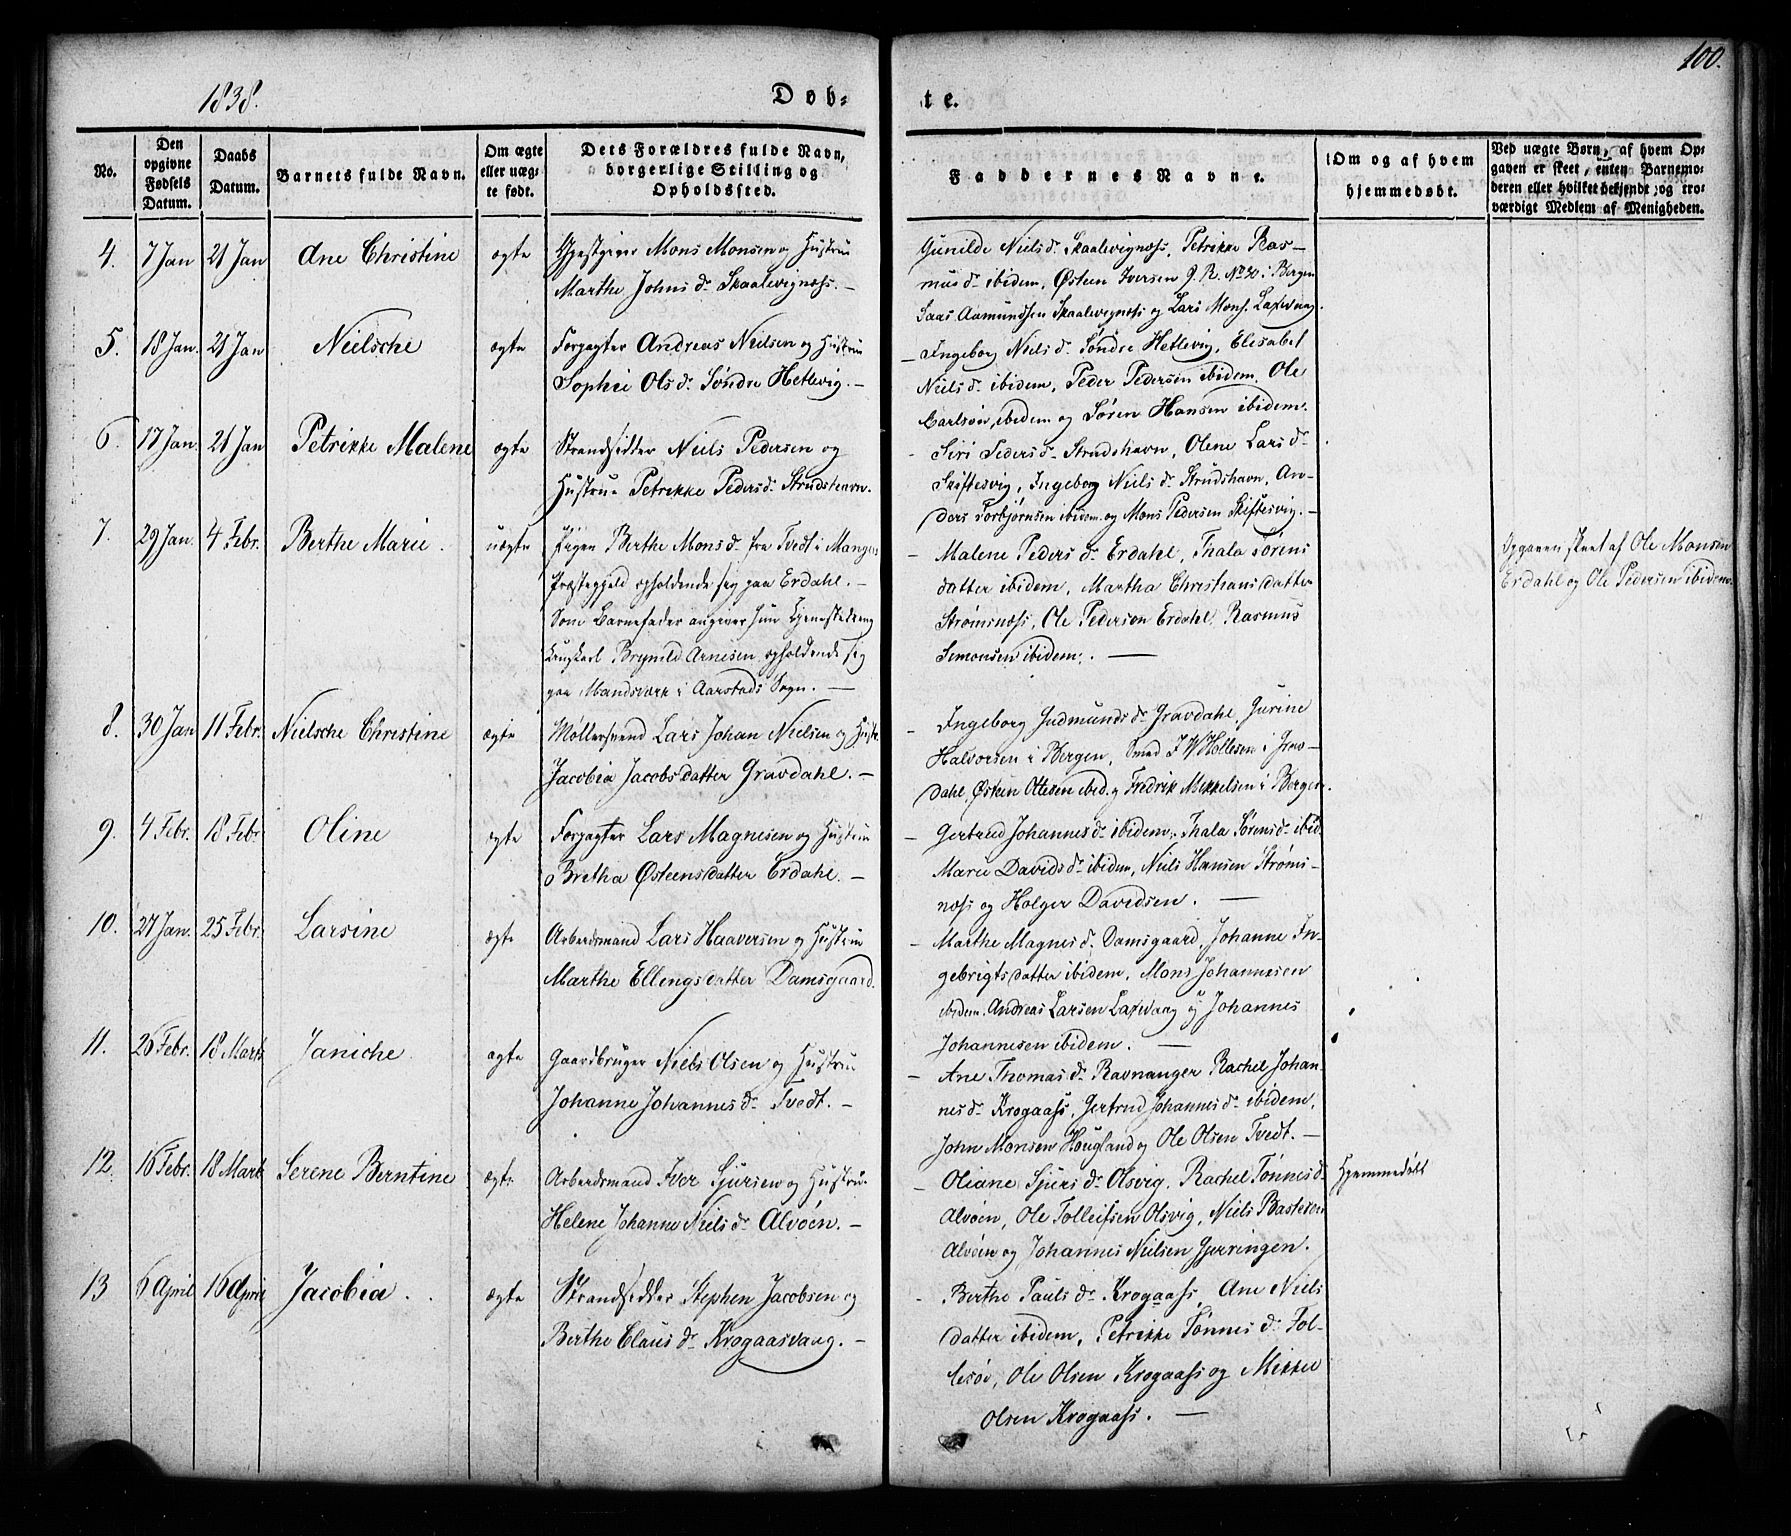 1838.
Døb-
te.
100.
No.
Den opgivne Fødsels Datum.
Daabs Datum.
Barnets fulde Navn.
Om ægte eller uægte født.
Dets Forældres fulde Navn, borgerlige Stilling og Opholdssted.
Faddernes Navne.
Om og af hvem hjemmedøbt.
Ved uægte Børn, af hvem Opgaven er skeet, enten Barnemoderen eller hvilket bekjendt og troværdigt Medlem af Menigheden.
4. 7 Jan 21 Jan Ane Christine ægte Gjestgiver Mons Monsen og Hustrue
Marthe Johns d. Skaalevignæss. —
Gunilde Niels d. Skaalevignæss, Petrikke Ras-
mus d. ibidem, Østen Iversen 9. R. No 20 i Bergen
Aamundsen Skaalevignæss og Lars Mons. Laxevaag.
5. 18 Jan. 21 Jan Nielsche ægte Forpagter Andreas Nielsen og Hustrue
Sophie Ols d. Søndre Hetlevig. —
— Ingeborg Niels d. Søndre Hetlevig, Elisabet
Niels d. ibidem, Peder Pedersen ibidem, Ole
Carlsøn, ibidem og Søren Hansen ibidem.
6. 17 Jan. 21 Jan Petrikke Malene ægte Strandsidder Niels Pedersen og
Hustrue Petrikke Peders d. Strudshavn.
- Siri Peders d. Strudshavn, Olene Lars d.
Skiftesvig, Ingeborg Niels d. Strudshavn, An-
ders Torbjørnsen ibidem og Mons Pedersen Skiftesvig. —
7. 29 Jan. 4 Febr. Berthe Marie. uægte Pigen Berthe Mons d. fra Tvedt i Manger
Præstegjeld opholdende sig paa Erdahl. —
Som Barnefader angiver hun Tjenestedreng
Ungkarl Brynild Arnesen opholdende sig
paa Mandsværk i Aarstads Sogn. —
- Malene Peders d. Erdahl, Thala Sørens
datter ibidem, Martha Christians datter
Strømsnæss, Ole Pederson Erdahl, Rasmus
Simonsen ibidem. —
Opgaven skeet af Ole Monsen
Erdahl og Ole Pedersen ibidem.
8. 30 Jan 11 Febr. Nielsche Christine ægte Møllersvend Lars Johan Nielsen og Hustr.
Jacobia Jacobs datter Gravdahl. —
- Ingeborg Gudmunds d. Gravdahl, Gurine
Halvorsen i Bergen, Smed J W Hollesen i Grav-
dahl, Østen Olesen ibid. og Fredrik Mikkelsen i Bergen.
9. 4 Febr. 18 Febr. Oline ægte Forpagter Lars Magnesen og Hustrue
Bretha Østeens datter Erdahl. —
- Gertrud Johannes d. ibidem, Thala Sørens d. ibid.
Marie Davids d. ibidem, Niels Hansen Strøms-
næss og Holger Davidsen. —
10. 27 Jan. 25 Febr. Larsine ægte Arbeidsmand Lars Haaversen og Hustrue
Marthe Ellengs datter Damsgaard.
- Marthe Magnes d. Damsgaard, Johanne In-
gebrigts datter ibidem, Mons Johannesen
ibidem, Andreas Larsen Laxevaag og Johannes
Johannesen ibidem. —
11. 26 Febr. 18 Marts Janiche. ægte Gaardbruger Niels Olsen og Hustrue
Johanne Johannes d. Tvedt. —
- Ane Thomas d. Ravnanger Rachel Johan-
nes d. Krogaass, Gertrud Johannes d. ibidem,
John Monsen Hougland og Ole Olsen Tvedt. —
12. 16 Febr. 18 Mark Serene Berntine ægte Arbeidsmand Iver Sjursen og Hustrue
Helene Johanne Niels d. Alvøen. —
- Oliane Sjurs d. Olsvig, Rachel Tønnes d.
Alvøen, Ole Tolleifsen Olsvig, Niels Bastesen
Alvøen og Johannes Nielsen Gjerringen.
Hjemmedøbt
13 6 April 16 April Jacobia. ægte Strandsidder Stephen Jacobsen og
Berthe Claus d. Krogaasvaag. —
- Berthe Pauls d. Krogaass, Ane Niels
datter ibidem, Petrikke Tønnes d. Fol-
lesøe, Ole Olsen Krogaass og Mikkel
Olsen Krogaass. —